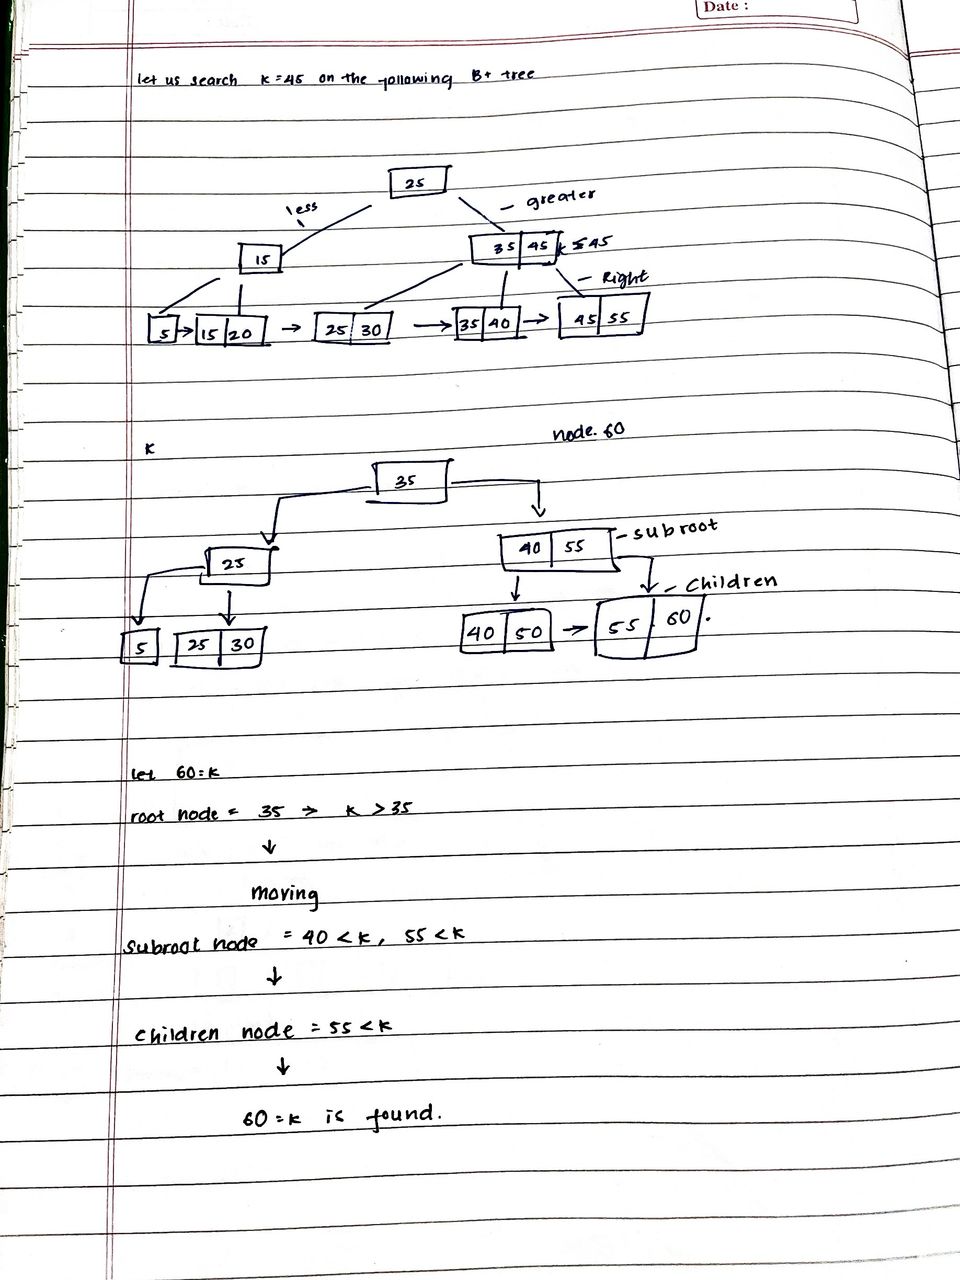 Date :
let us search K=45 on the following B+ tree
25
less - greater
15 35 45 K ≤ 45
- Right
5 → 15 20 → 25 30 → 35 40 → 45 55
K node. 60
35
25 40 55 - subroot
- Children
5 25 30 40 50 → 55 60 .
let 60=K
root node = 35 → K > 35
↓
moving
subroot node = 40 < K, 55 < K
↓
Children node = 55 < K
↓
60 = K is found.